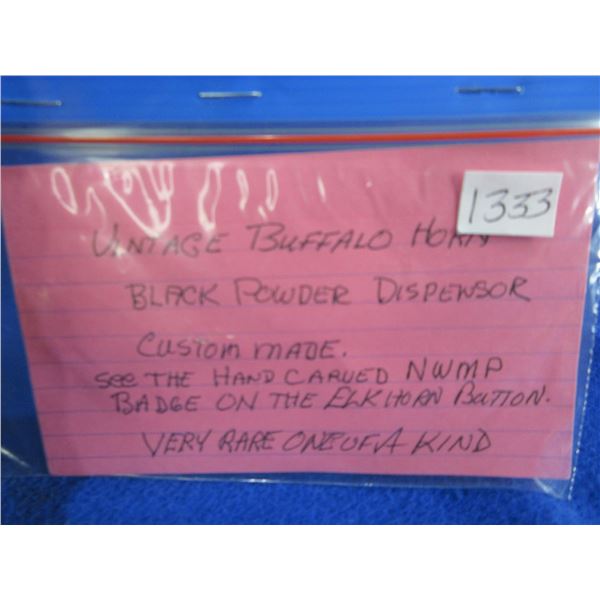 1333
VINTAGE BUFFALO HORN
BLACK POWDER DISPENSOR
CUSTOM MADE.
SEE THE HAND CARVED NWMP
BADGE ON THE ELKHORN BUTTON.
VERY RARE ONE OF A KIND